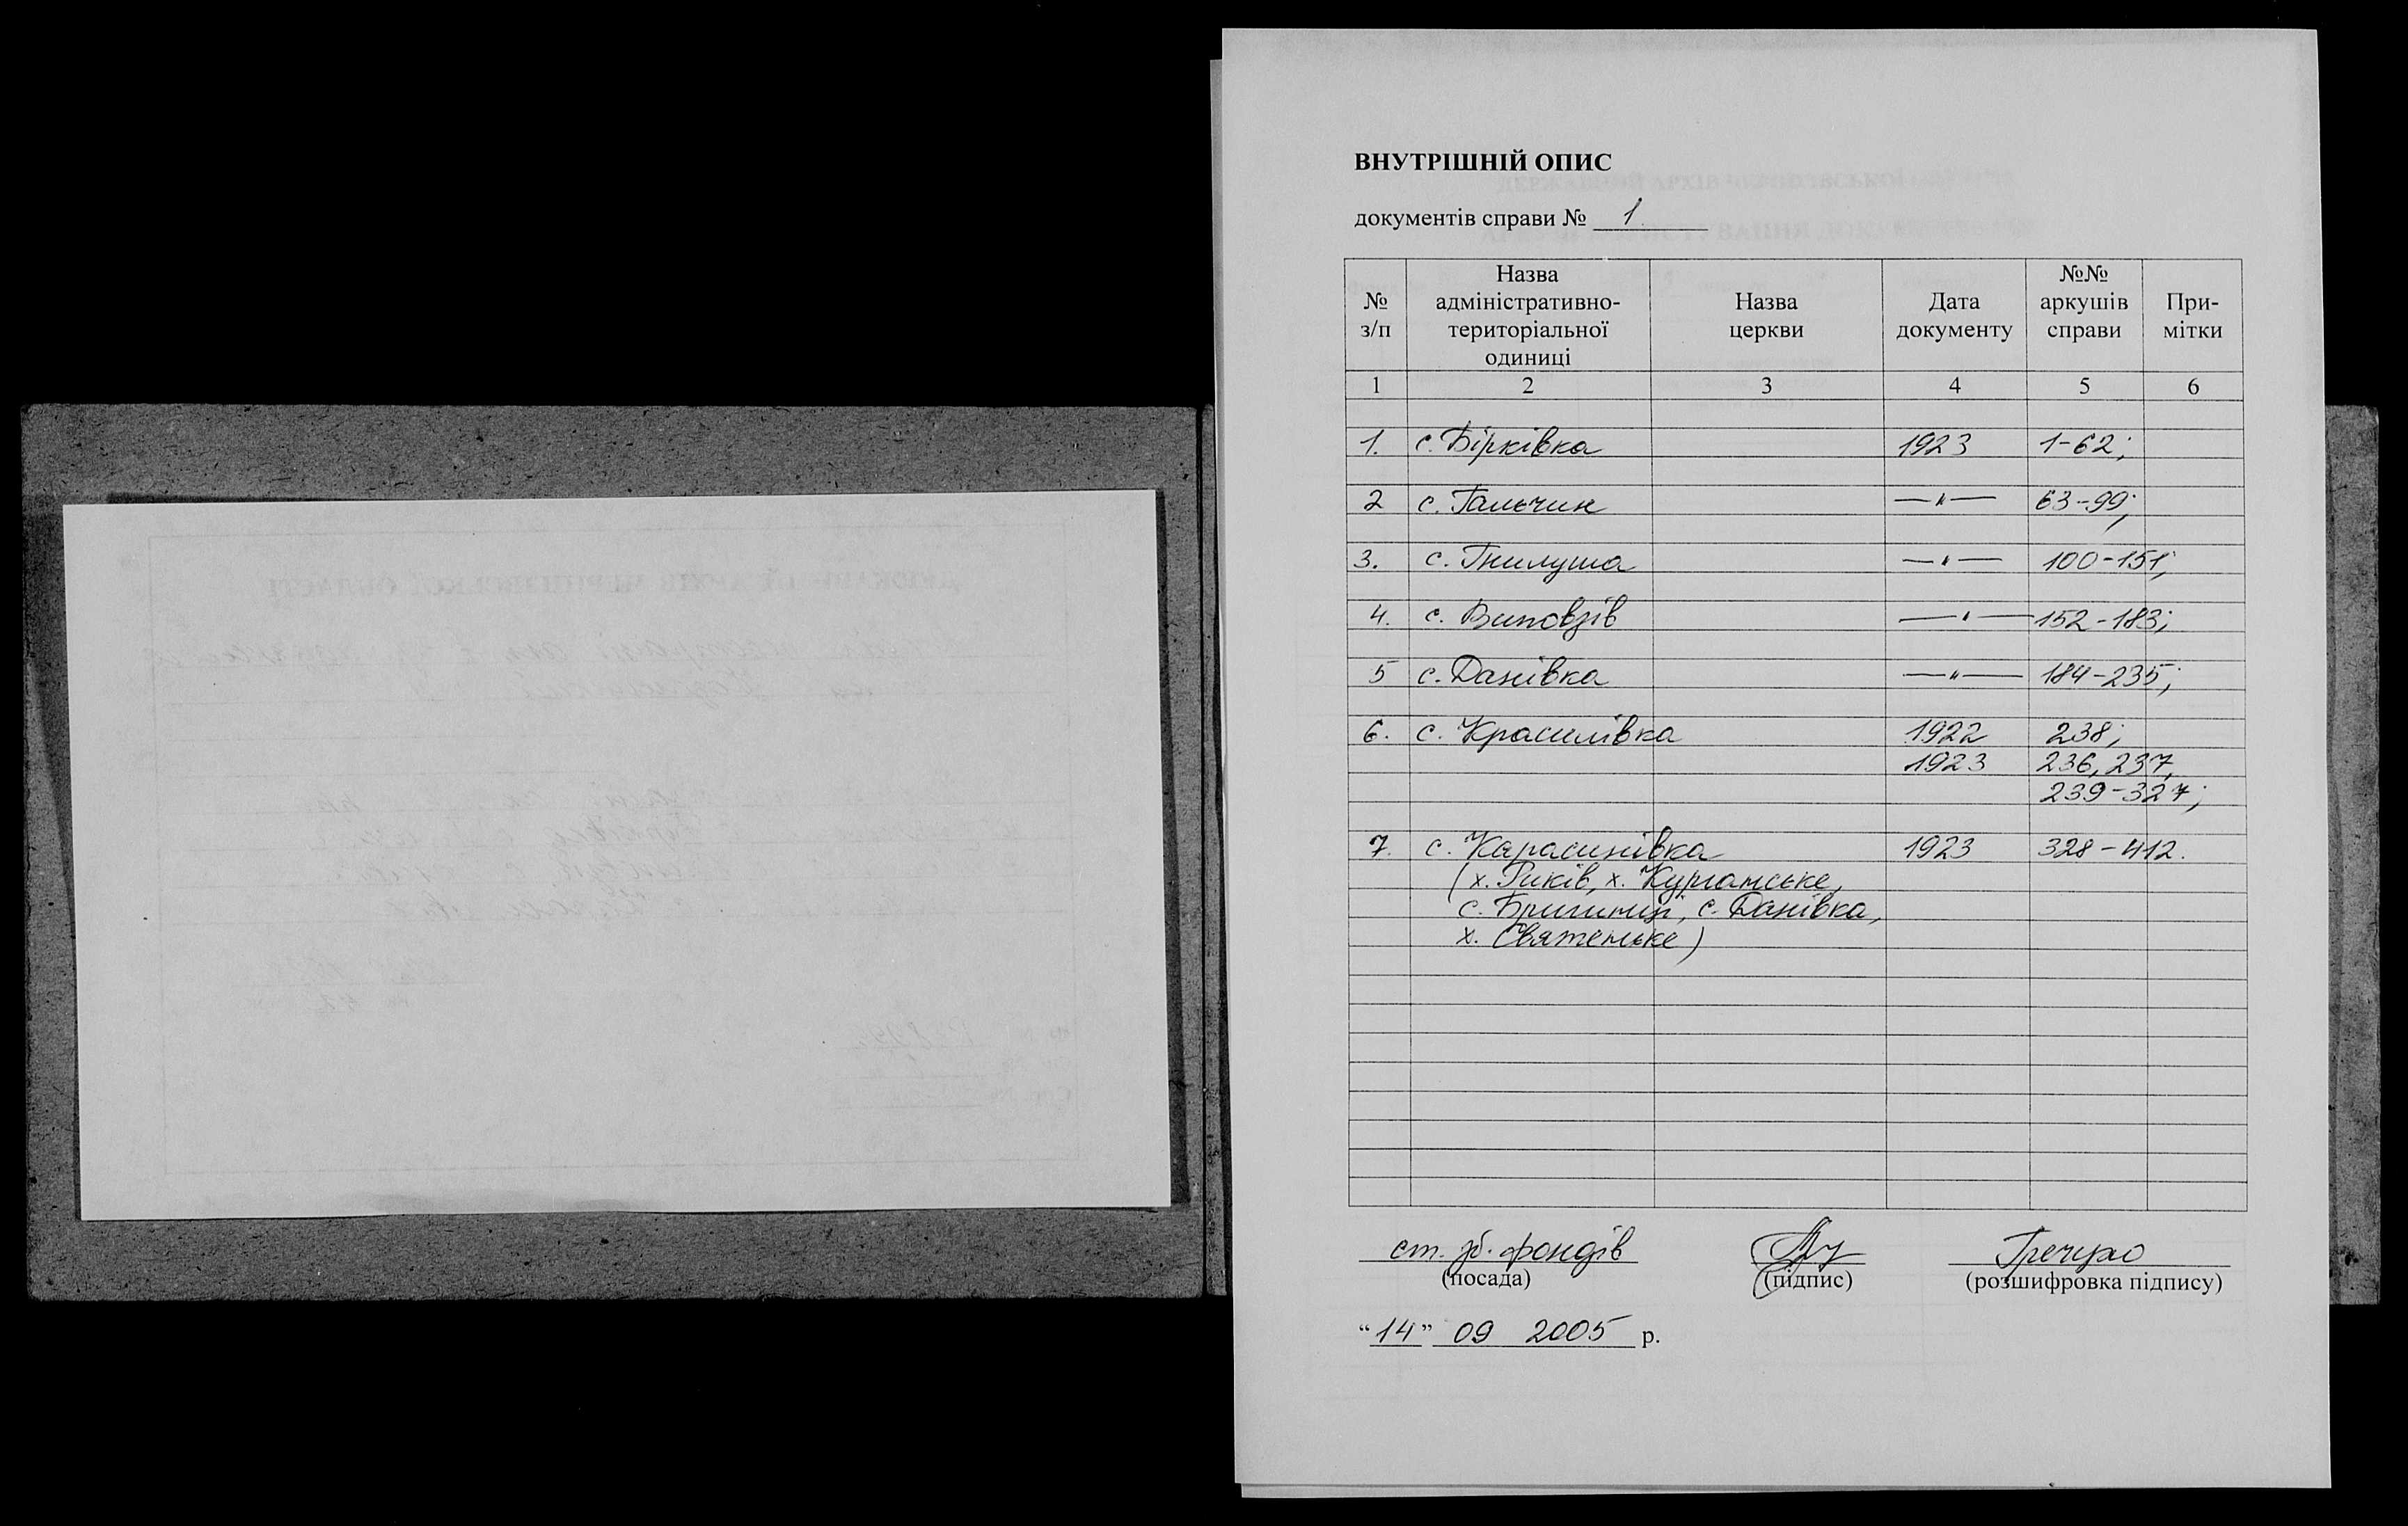 ВНУТРІШНІЙ ОПИС
документів справи № 1
№ з/п
Назва адміністративно-територіальної одиниці
Назва церкви
Дата документу
№№ аркушів справи
При-мітки
1 2 3 4 5 6
1. с. Бірківка 1923 1-62;
2 с. Гальчин —"— 63-99;
3. с. Гнилуша —"— 100-151;
4. с. Виповзів —"— 152-183;
5 с. Данівка —"— 184-235;
6. с. Красилівка 1922 238;
1923 236, 237,
239-327;
7. с. Карасинівка 1923 328-412.
(х. Риків, х. Курганське,
с. Бригинці, с. Данівка,
х. Святенське)
ст. зб. фондів
(посада) (підпис) (розшифровка підпису)
“14” 09 2005 р.